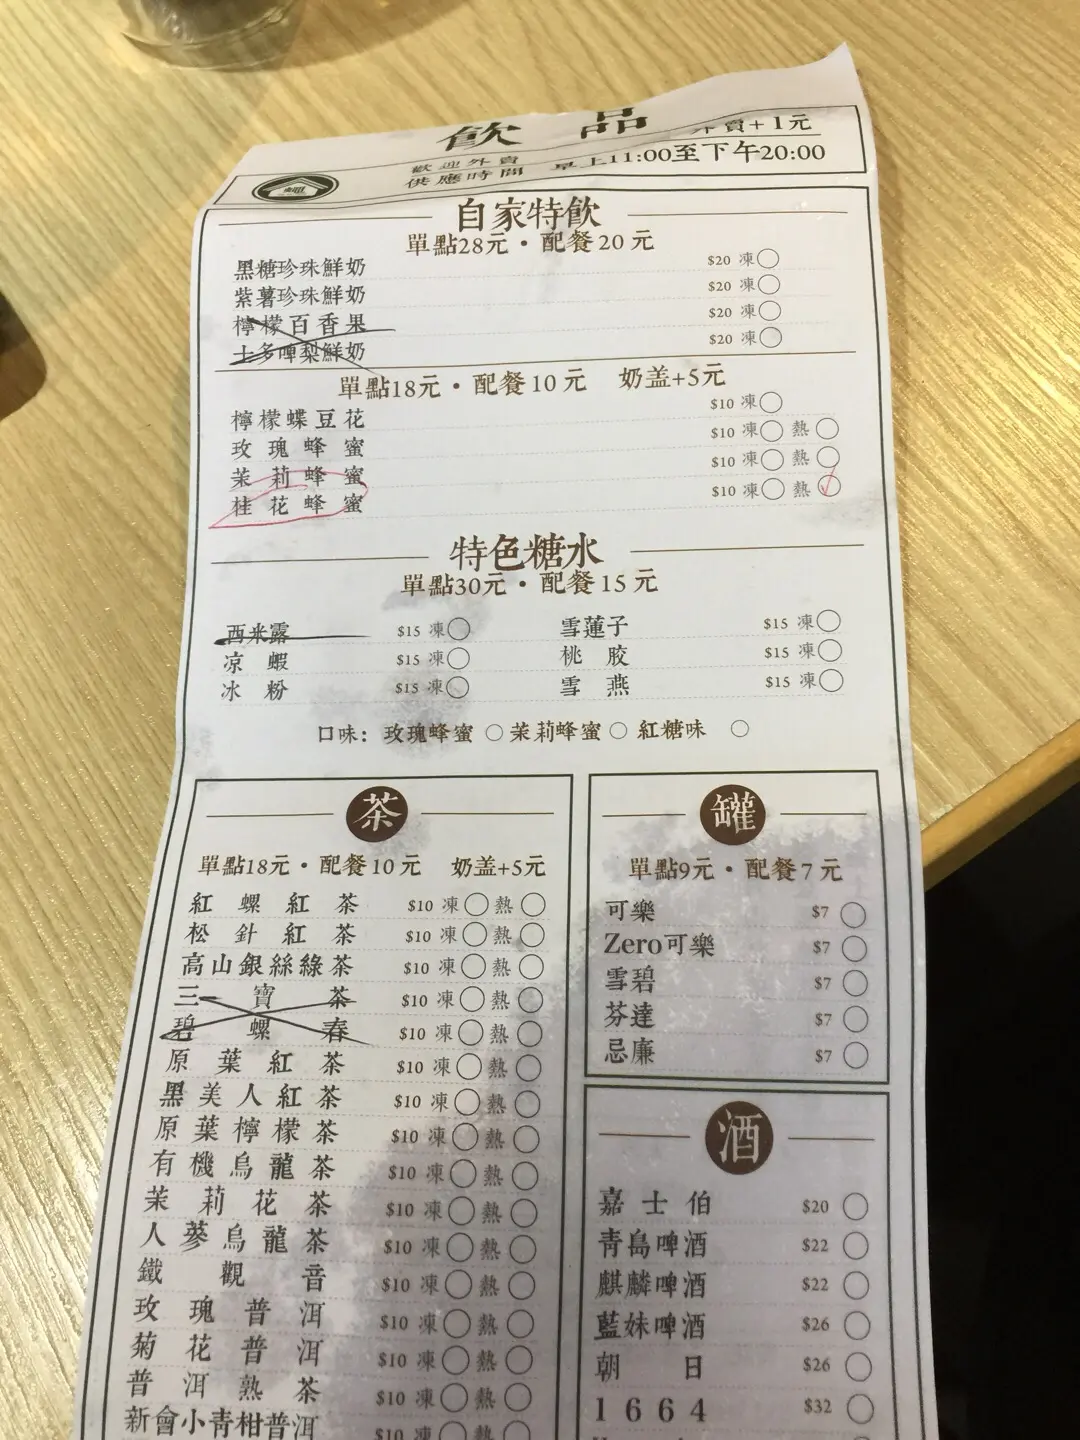 飲品
外賣+1元
歡迎外賣
供應時間 早上11:00至下午20:00
自家特飲
單點28元・配餐20元
黑糖珍珠鮮奶 $20 凍
紫薯珍珠鮮奶 $20 凍
檸檬百香果 $20 凍
士多啤梨鮮奶 $20 凍
單點18元・配餐10元 奶盖+5元
檸檬蝶豆花 $10 凍
玫瑰蜂蜜 $10 凍 熱
茉莉蜂蜜 $10 凍 熱
桂花蜂蜜 $10 凍 熱
特色糖水
單點30元・配餐15元
西米露 $15 凍 雪蓮子 $15 凍
凉蝦 $15 凍 桃膠 $15 凍
冰粉 $15 凍 雪燕 $15 凍
口味：玫瑰蜂蜜 茉莉蜂蜜 紅糖味
茶
單點18元・配餐10元 奶盖+5元
紅螺紅茶 $10 凍 熱
松針紅茶 $10 凍 熱
高山銀絲綠茶 $10 凍 熱
三寶茶 $10 凍 熱
碧螺春 $10 凍 熱
原葉紅茶 $10 凍 熱
黑美人紅茶 $10 凍 熱
原葉檸檬茶 $10 凍 熱
有機烏龍茶 $10 凍 熱
茉莉花茶 $10 凍 熱
人蔘烏龍茶 $10 凍 熱
鐵觀音 $10 凍 熱
玫瑰普洱 $10 凍 熱
菊花普洱 $10 凍 熱
普洱熟茶 $10 凍 熱
新會小青柑普洱 $10 凍 熱
罐
單點9元・配餐7元
可樂 $7
Zero可樂 $7
雪碧 $7
芬達 $7
忌廉 $7
酒
嘉士伯 $20
青島啤酒 $22
麒麟啤酒 $22
藍妹啤酒 $26
朝日 $26
1664 $32